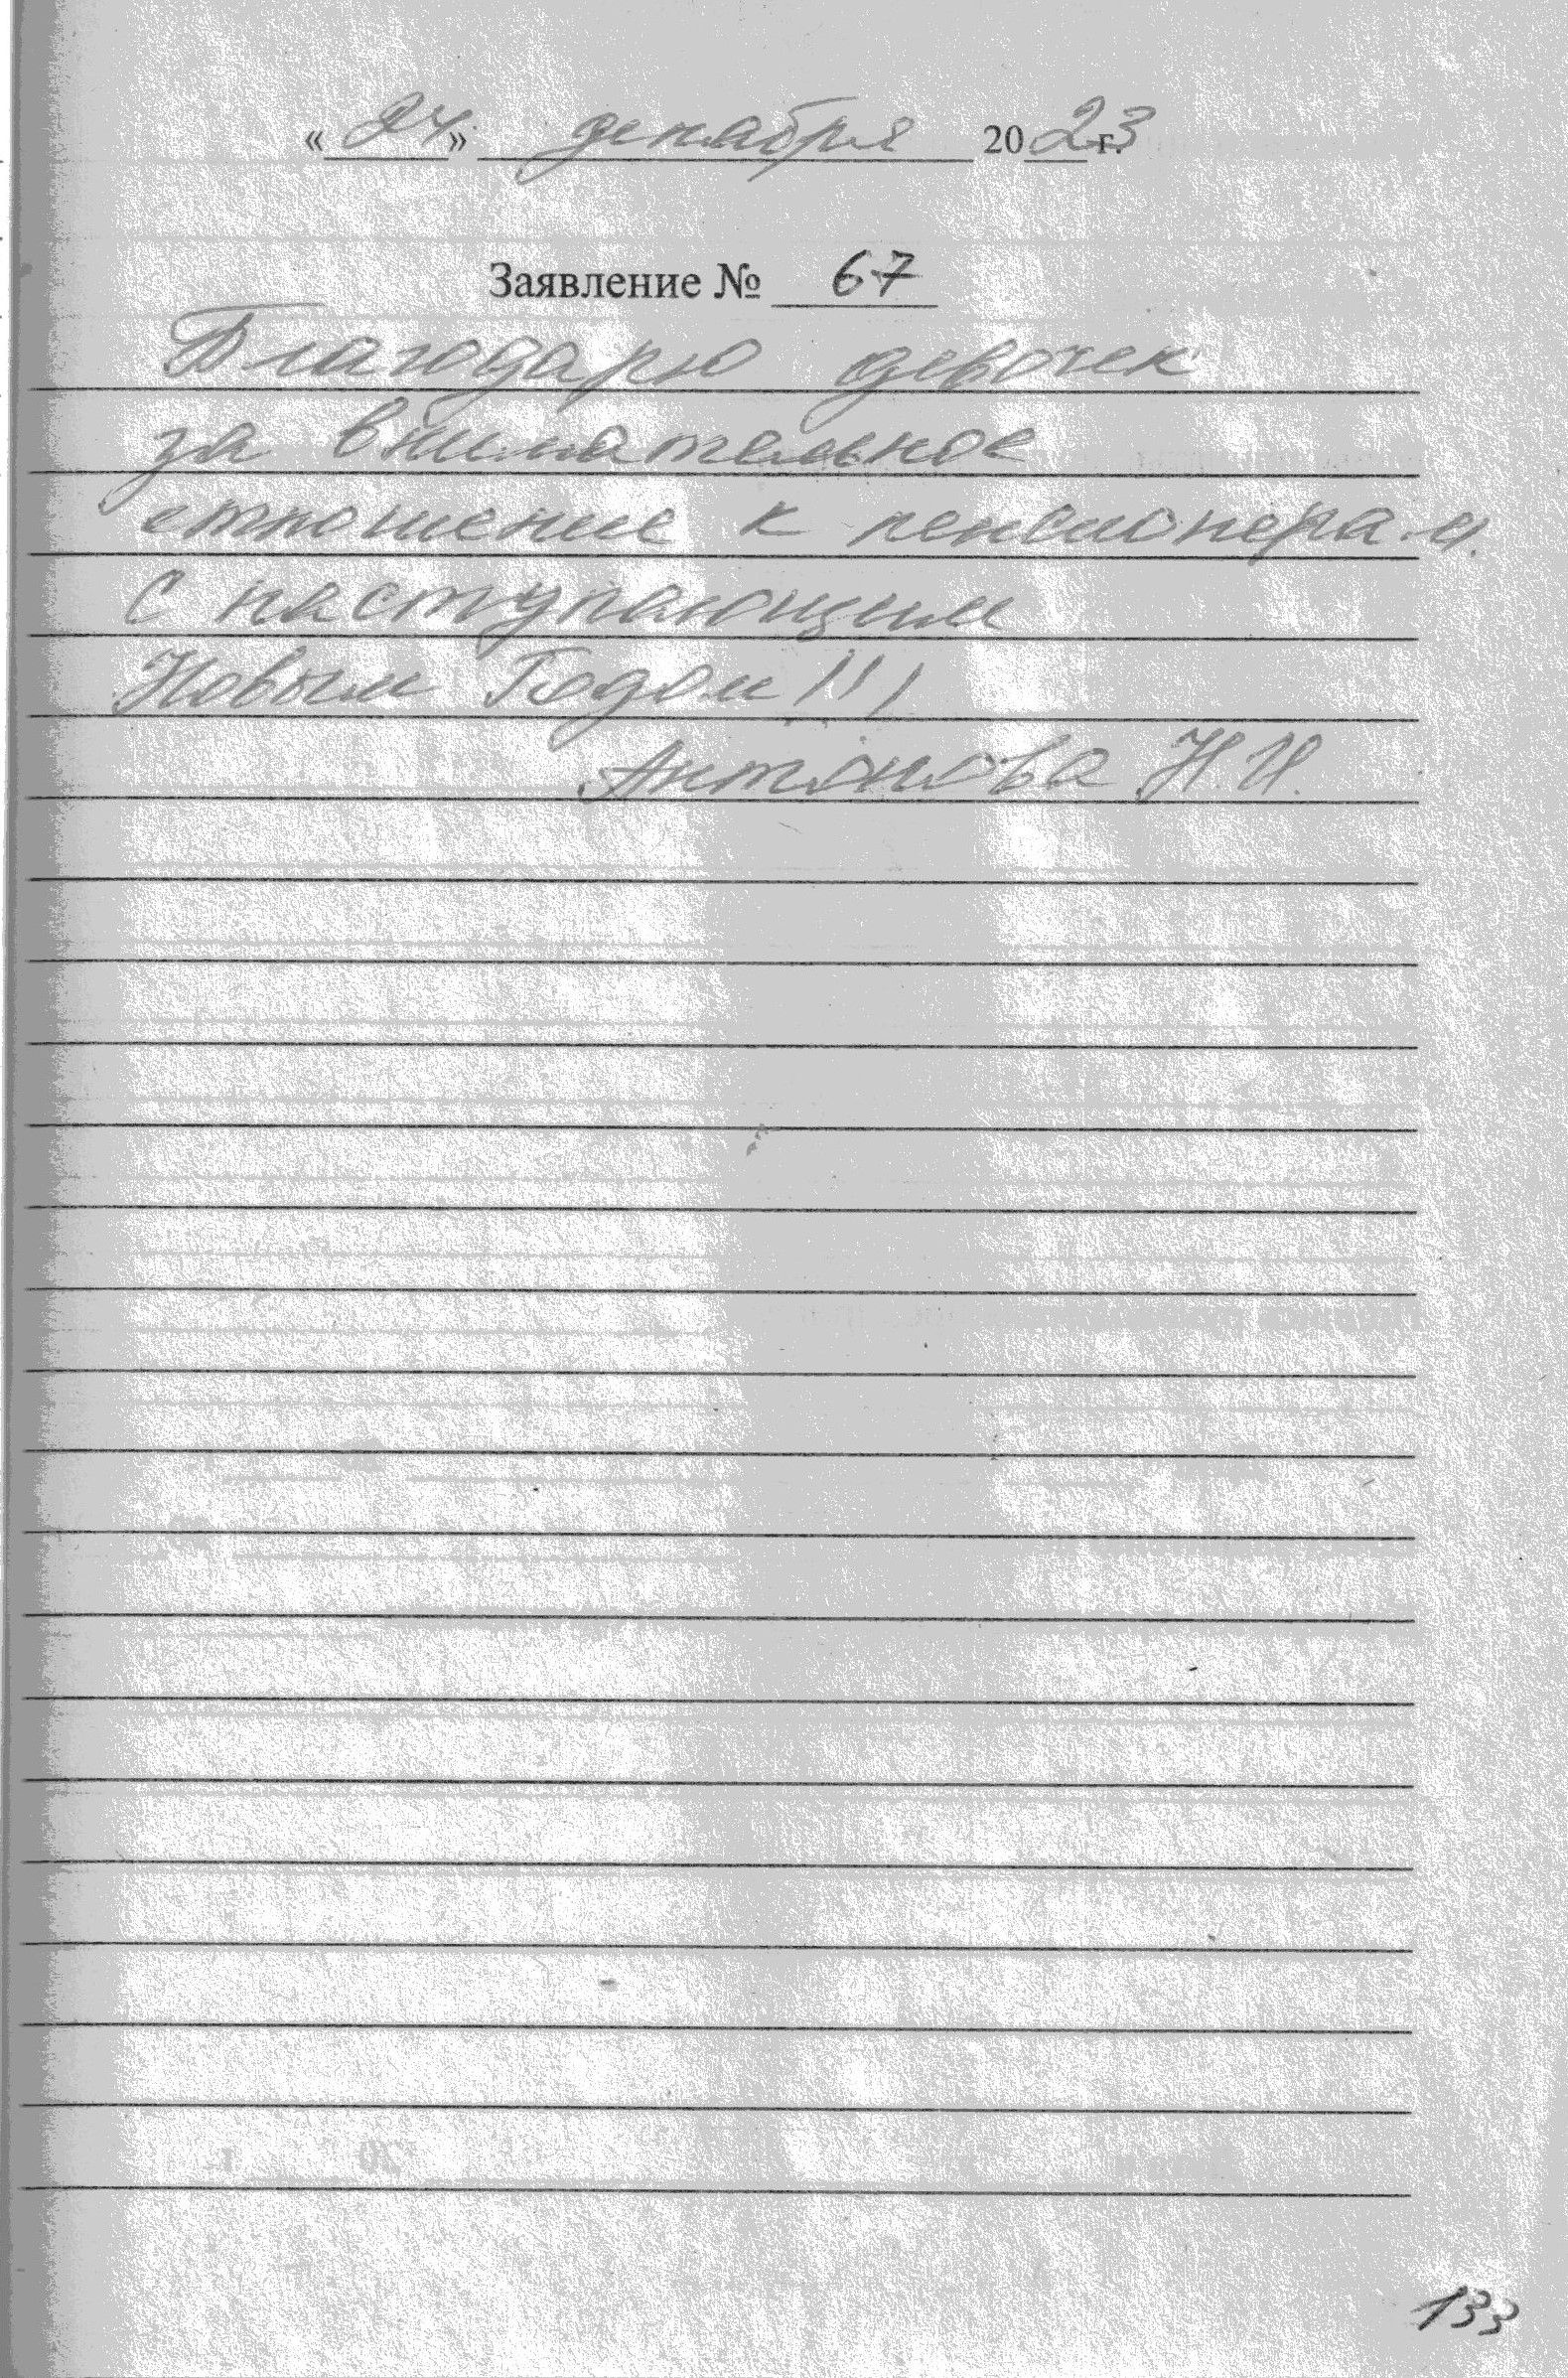 «24» декабря 2023 г.
Заявление № 67
Благодарю девочек
за внимательное
отношение к пенсионерам.
С наступающим
Новым Годом!!!
Антонова Н.И.
133